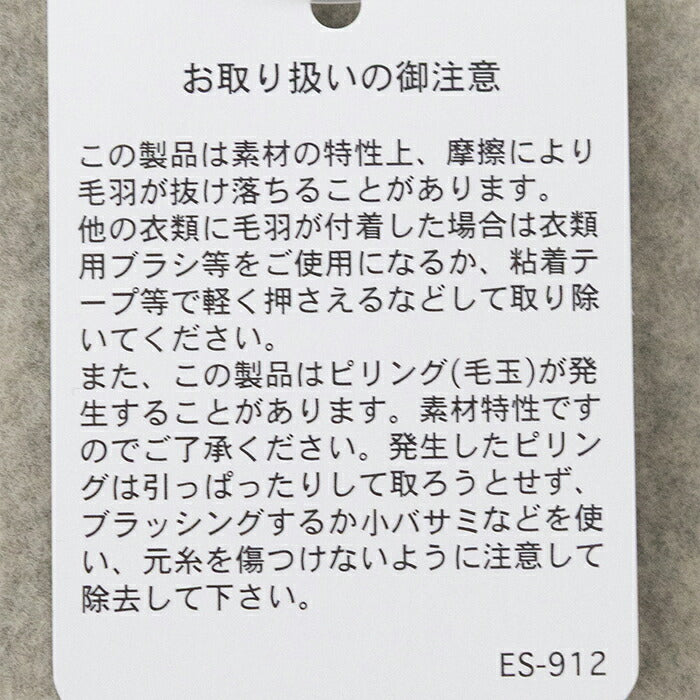 お取り扱いの御注意
この製品は素材の特性上、摩擦により
毛羽が抜け落ちることがあります。
他の衣類に毛羽が付着した場合は衣類
用ブラシ等をご使用になるか、粘着テ
ープ等で軽く押さえるなどして取り除
いてください。
また、この製品はピリング(毛玉)が発
生することがあります。素材特性です
のでご了承ください。発生したピリン
グは引っぱったりして取ろうとせず、
ブラッシングするか小バサミなどを使
い、元糸を傷つけないように注意して
除去して下さい。
ES-912